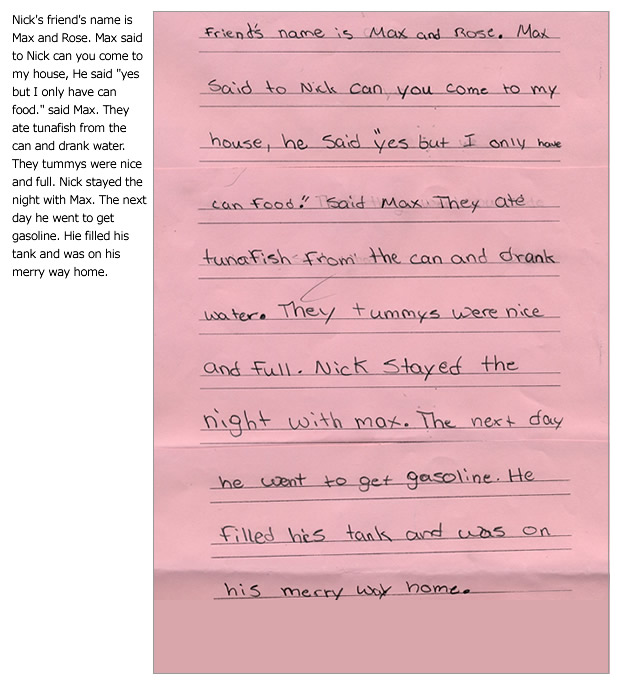 Nick's friend's name is
Max and Rose. Max said
to Nick can you come to
my house, He said "yes
but I only have can
food." said Max. They
ate tunafish from the
can and drank water.
They tummys were nice
and full. Nick stayed the
night with Max. The next
day he went to get
gasoline. Hie filled his
tank and was on his
merry way home.
friend's name is Max and Rose. Max
Said to Nick can you come to my
house, he said "yes but I only have
can food." said Max They ate
tunafish from the can and drank
water. They tummys were nice
and full. Nick Stayed the
night with max. The next day
he went to get gasoline. He
filled his tank and was on
his merry way home.